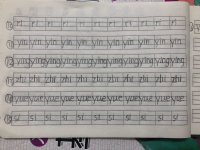 ri ri ri ri ri ri ri ri
yin yin yin yin yin yin yin yin
ying ying ying ying ying ying ying ying
zhi zhi zhi zhi zhi zhi zhi zhi
yue yue yue yue yue yue yue yue
si si si si si si si si